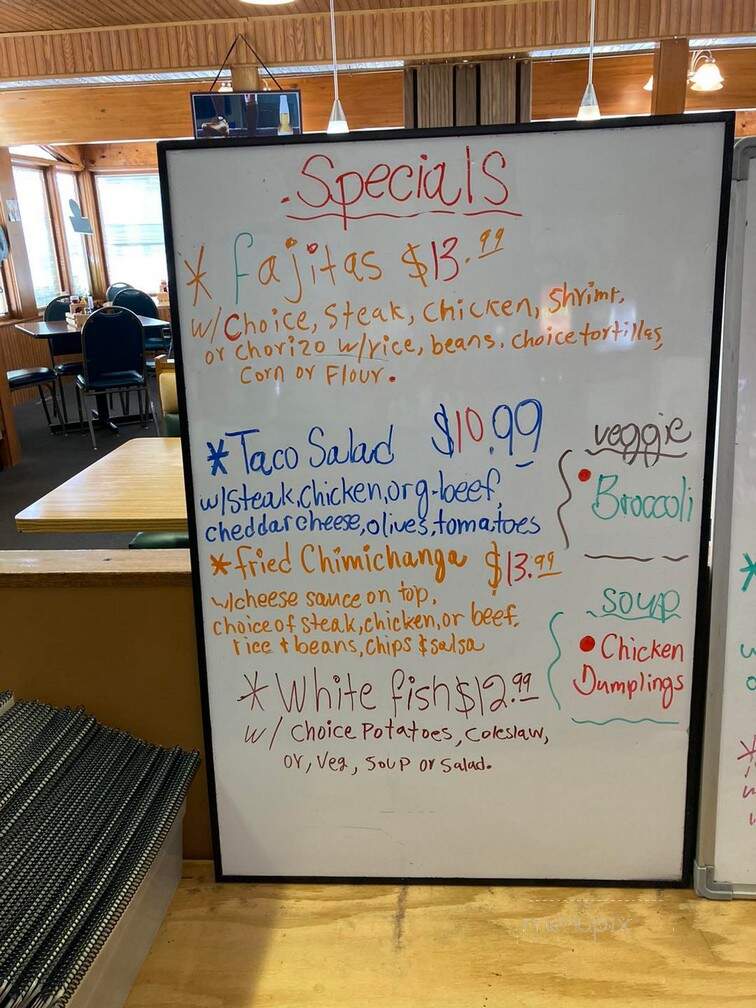 .Specials
* Fajitas $13.99
w/Choice, Steak, Chicken, Shrimp,
or Chorizo w/rice, beans. choice tortillas,
Corn or Flour.
*Taco Salad $10.99
w/steak, chicken, org-beef,
cheddar cheese, olives, tomatoes
*fried Chimichanga $13.99
w/cheese sauce on top,
choice of steak, chicken, or beef,
rice + beans, chips & salsa
*White fish $12.99
w/ choice Potatoes, Coleslaw,
or, Veg, Soup or Salad.
veggie
Broccoli
soup
Chicken
Dumplings